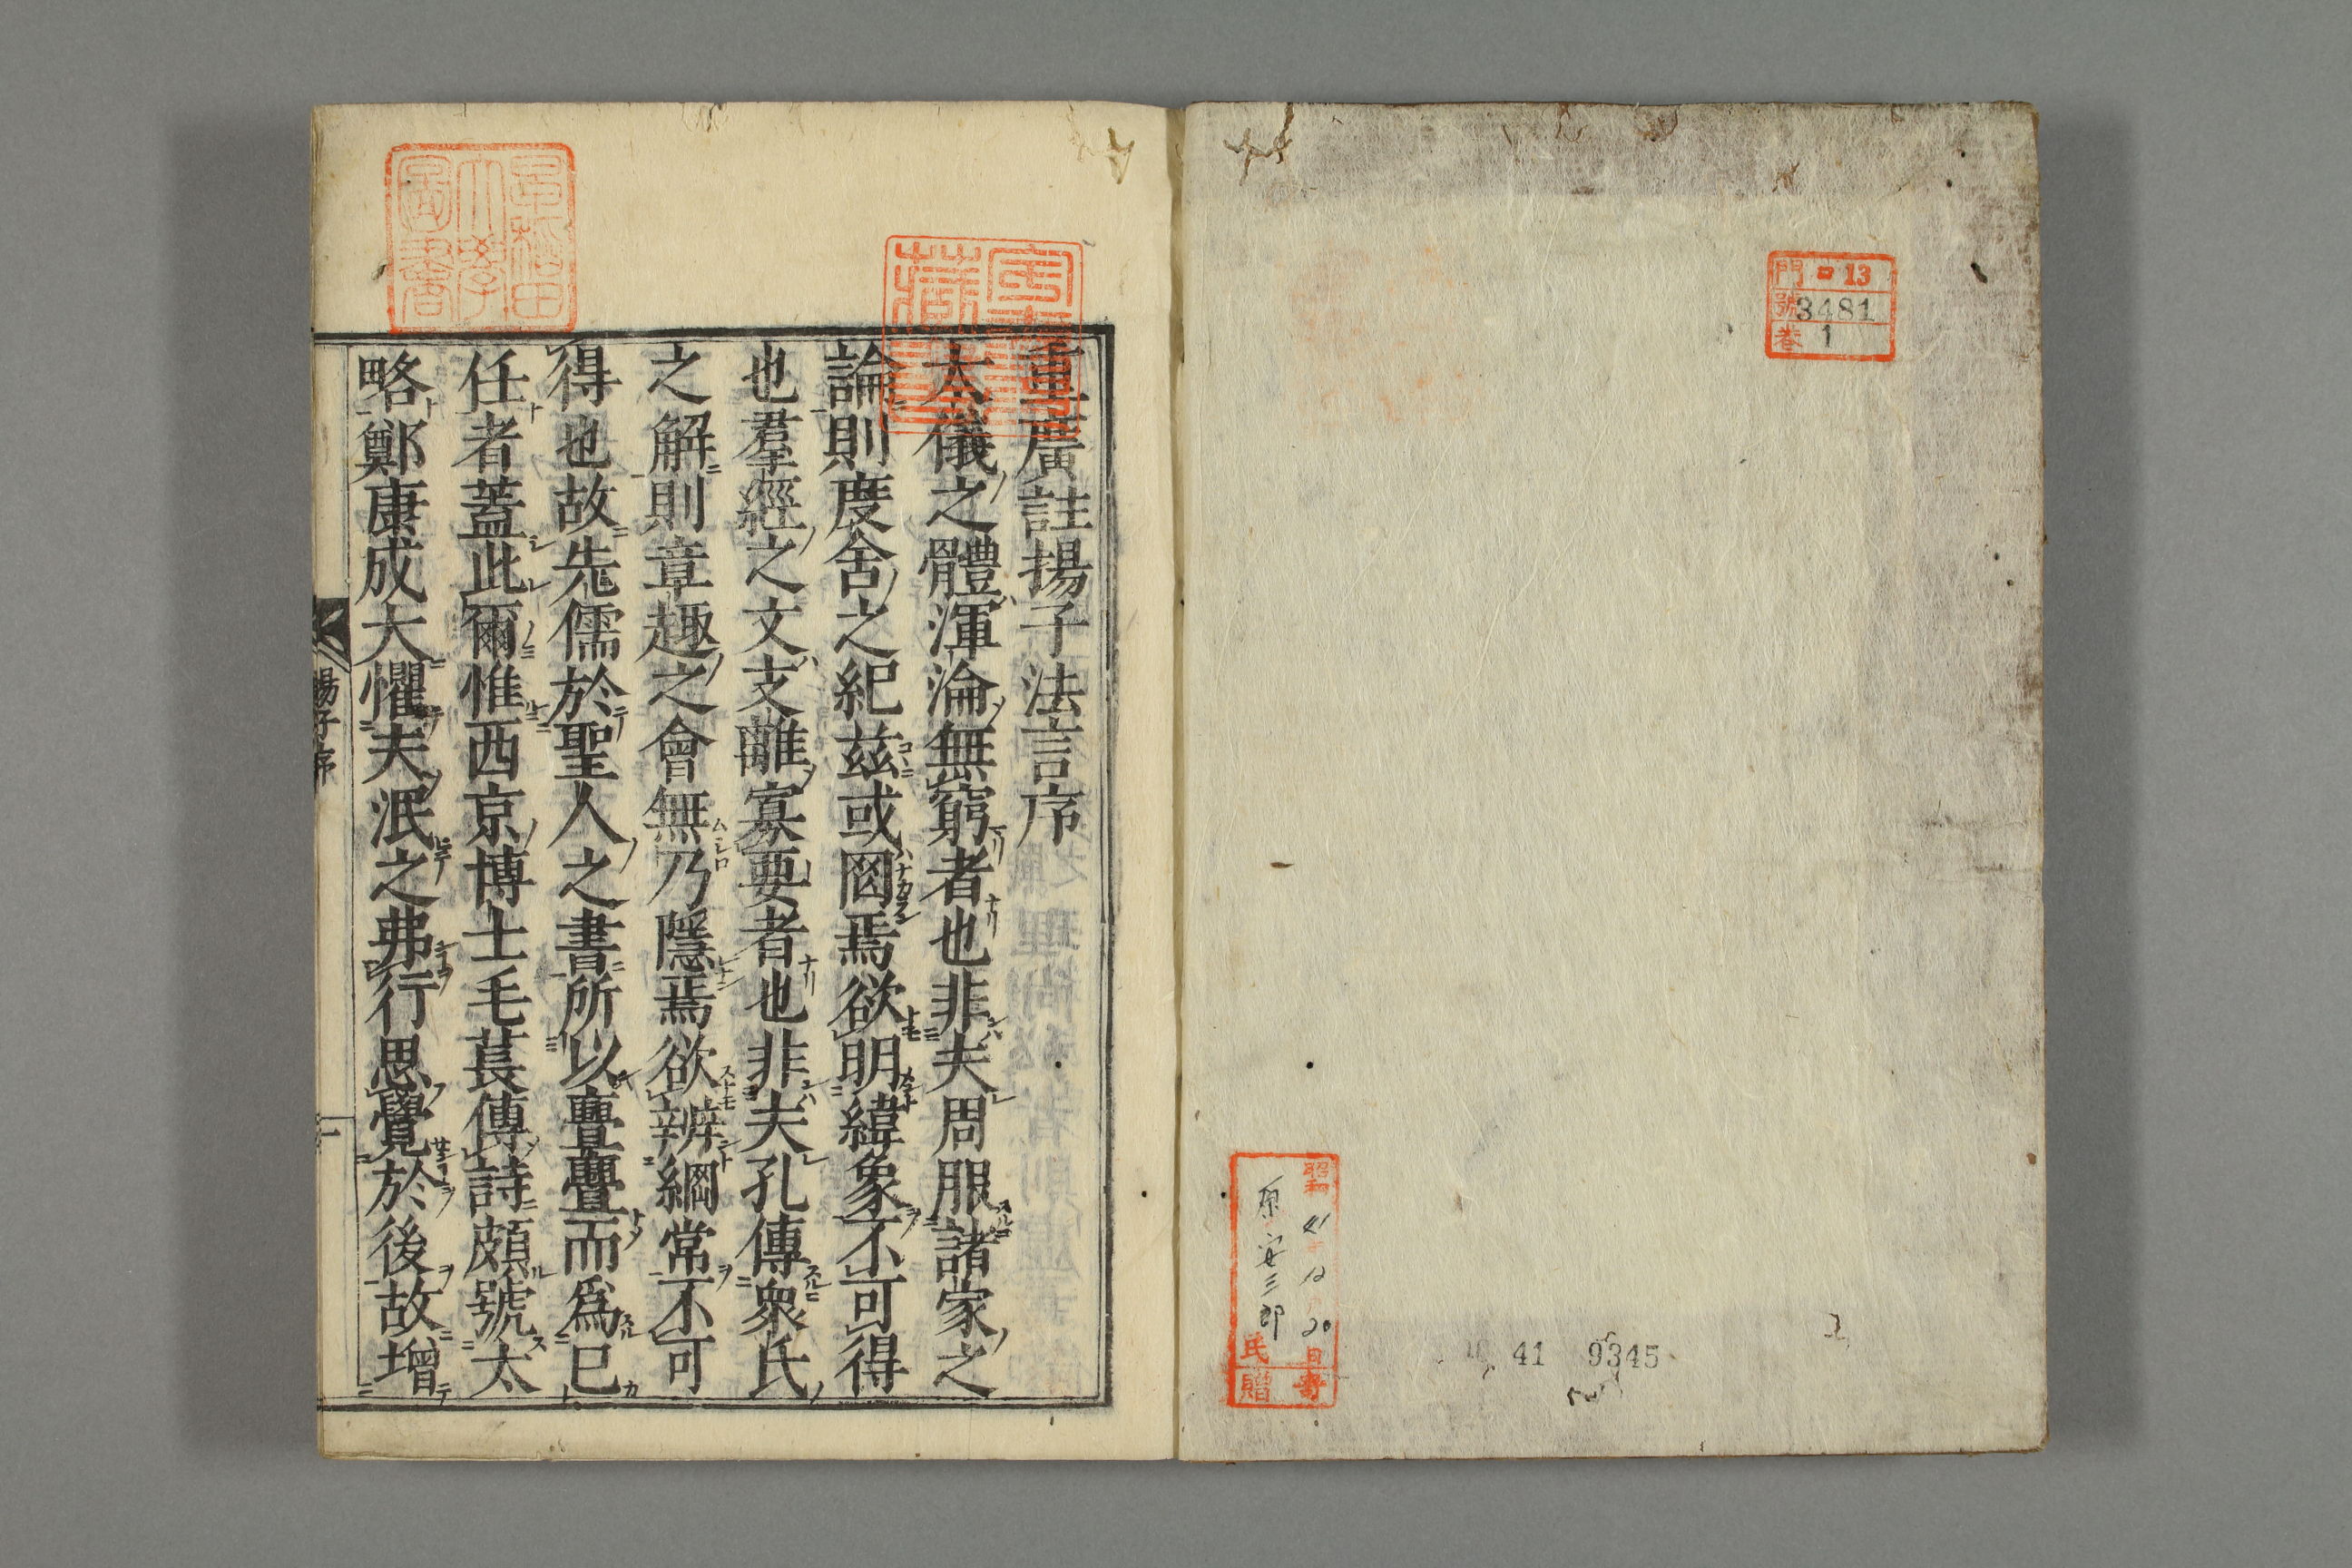 門 ロ 13
號 3481
卷 1
昭和 41 12 20 日寄
原安三郎 氏贈
41 9345
早稲田大學圖書
重廣註揚子法言序
大儀之體渾淪無窮者也非夫周服諸家之
論則度舍之紀茲或罔焉欲明緯象不可得
也羣經之文支離寡要者也非夫孔傳衆氏
之解則章趣之會無乃隱焉欲辨綱常不可
得也故先儒於聖人之書所以亹亹而爲已
任者蓋此爾惟西京博士毛萇傳詩頗號太
略鄭康成大懼夫泯之弗行思覺於後故增
揚子序
一